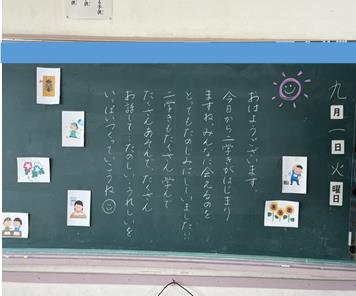 九月一日火曜日
おはようございます。
今日から二学きがはじまり
ますね。みんなに会えるのを
とってもたのしみにしていました!!
二学きもたくさん学んで
たくさんあそんで、たくさん
お話して…たのしい・うれしいを
いっぱいつくっていこうね